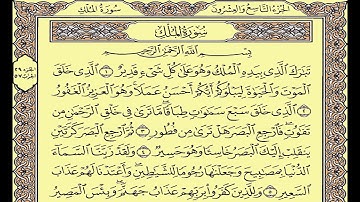 الجزء التاسع والعشرون
سورة الملك
سورة الملك
بسم الله الرحمن الرحيم
تبرك الذي بيده الملك وهو على كل شيء قدير ١ الذي خلق
الموت والحيوة ليبلوكم أيكم أحسن عملا وهو العزيز الغفور
٢ الذي خلق سبع سموت طباقا ما ترى في خلق الرحمن من
تفوت فارجع البصر هل ترى من فطور ٣ ثم ارجع البصر كرتين
ينقلب إليك البصر خاسئا وهو حسير ٤ ولقد زينا السماء
الدنيا بمصبيح وجعلنها رجوما للشيطين وأعتدنا لهم عذاب
السعير ٥ وللذين كفروا بربهم عذاب جهنم وبئس المصير